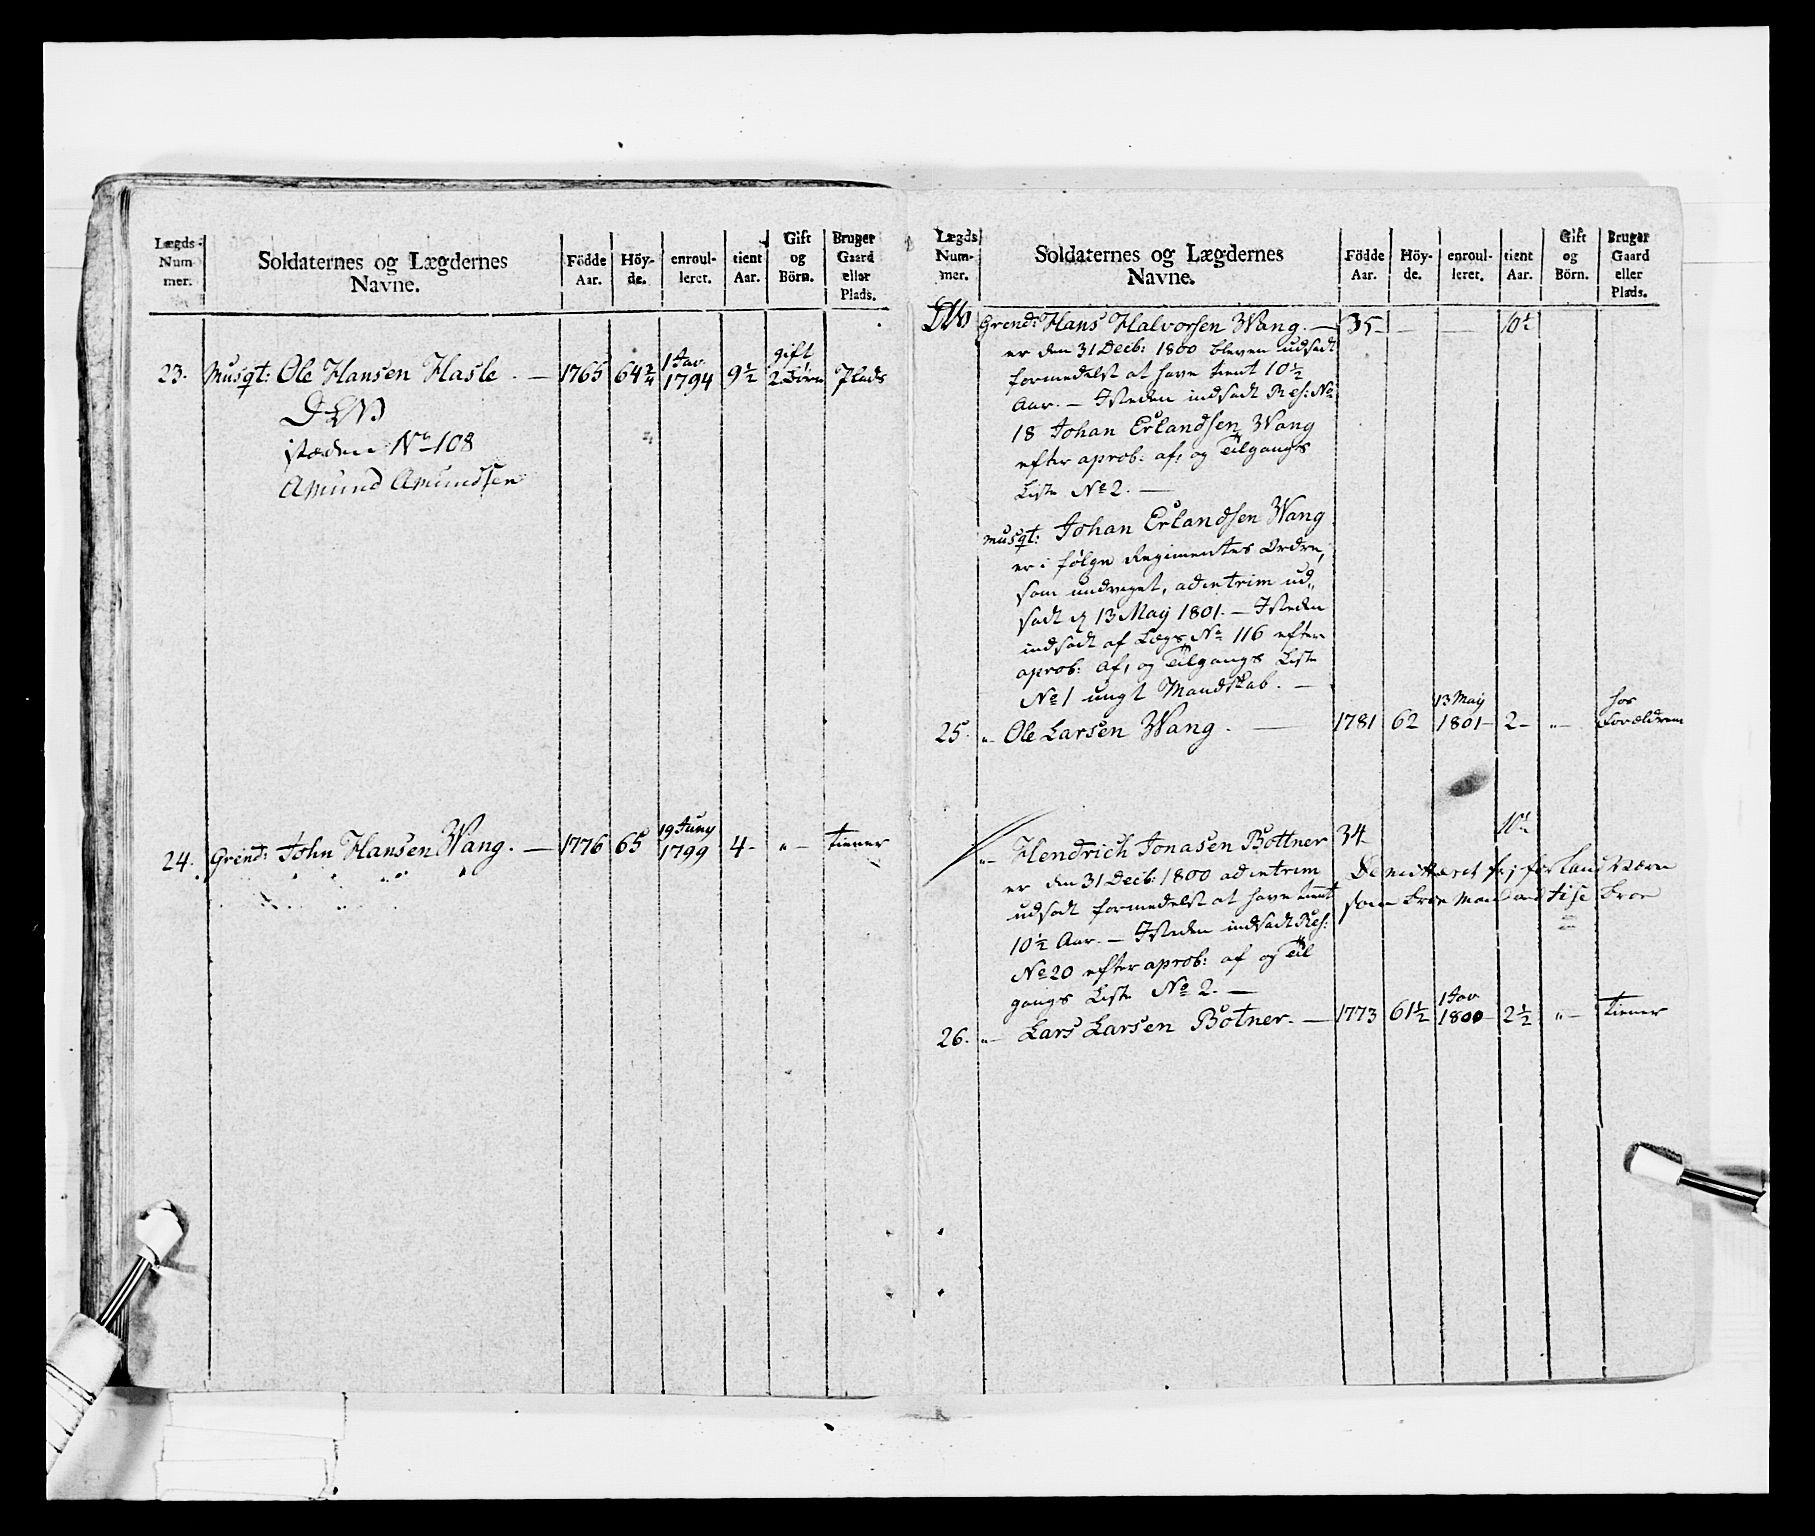 Lægds-
Num
mer.
Soldaternes og Lægdernes
Navne.
Födde
Aar.
Höy-
de.
enroul-
leret.
tient
Aar.
Gift
og
Börn.
Bruger
Gaard
eller
Plads.
23. Musqt: Ole Hansen Hasle. — 1765 64 2/4 1 Jan 1794 9½ gift 2 Børn Plads
DLW
istæden No 108
Amund Amundsen
24. Grend: John Hansen Wang. — 1776 65 19 Juny 1799 4 - „ - tiener
Lægds
Num-
mer.
Soldaternes og Lægdernes
Navne.
Födde
Aar.
Höy-
de.
enroul-
leret.
tient
Aar.
Gift
og
Börn.
Bruger
Gaard
eller
Plads.
LW Grend: Hans Halvorsen Wang. — 35 - — — 10½
er den 31 Decb: 1800 bleven udsadt
formedelst at have tient 10½
Aar. — Isteden indsadt Res: No
18 Johan Erlandsen Wang
efter aprob: af, og Tilgangs
Liste No 2. —
Musqt: Johan Erlandsen Wang
er i følge Regimentes Ordre,
som undveget, ad intrim ud„
sadt d 13 May 1801. — Isteden
indsadt af Lægs No 116 efter
aprob: af, og Tilgangs Liste
No 1 ungt Mandskab. —
25. „ Ole Larsen Wang. — 1781 62 13 May 1801 - 2 - „ - hos Forældrene
„ Hendrich Jonasen Bottner 34 10½
er den 31 Decb: 1800 ad intrim
udsadt formedelst at have tient
10½ Aar. — Isteden indsadt Res:
No 20 efter aprob: af og Til
gangs Liste No 2. —
26. „ Lars Larsen Botner. — 1773 61½ 1 Jan 1800 2½ „ - Tiener